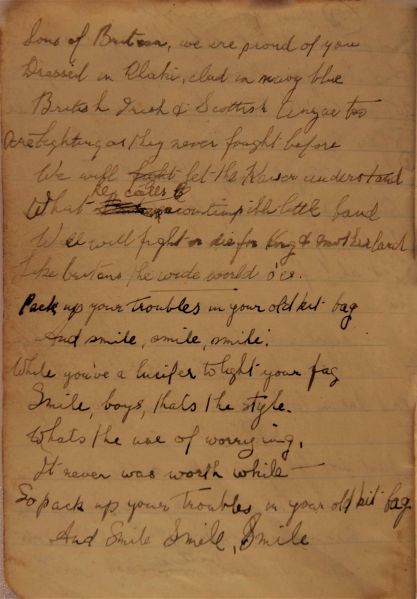 Sons of Britain, we are proud of you
Dressed in Khaki, clad in navy blue
British Irish & Scottish
Are fighting as they never fought before
We will fight let the Kaiser understand
What he calls contemptible little band
Well will fight or die for King & motherland
Like Britons the wide world o'er.
Pack up your troubles in your old kit bag
And smile, smile, smile.
While you've a lucifer to light your fag
Smile, boys, thats the style.
Whats the use of worrying,
It never was worth while —
So pack up your troubles in your old kit bag
And Smile Smile, Smile